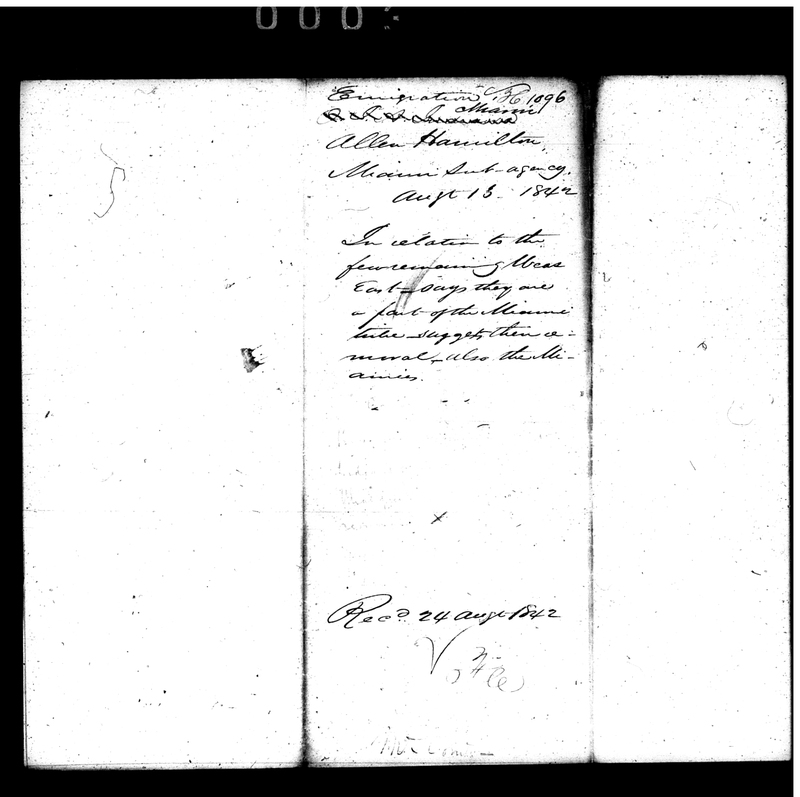 0003
Emigration H 1096
Miami
Allen Hamilton,
Miami Sub-agency.
Augt 13. 1842
In relation to the
few remaining Weas
East - says they are
a part of the Miami
tribe - suggests their re-
moval, - also the Mi-
amies.
Recd. 24 Augt 1842
File